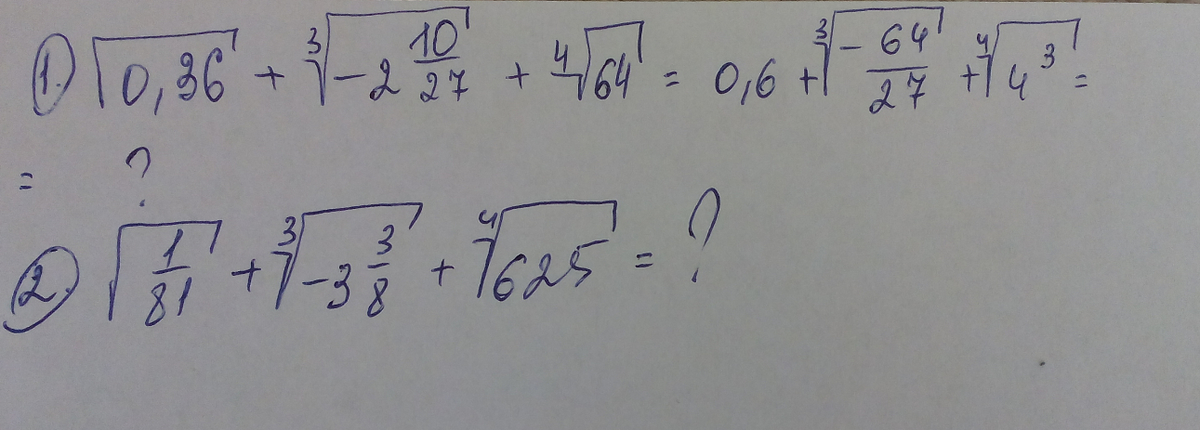 1. √0,36 + ∛(-2 10/27) + ∜64 = 0,6 + ∛(-64/27) + ∜(4³) =
= ?
2. √(1/81) + ∛(-3 3/8) + ∜625 = ?